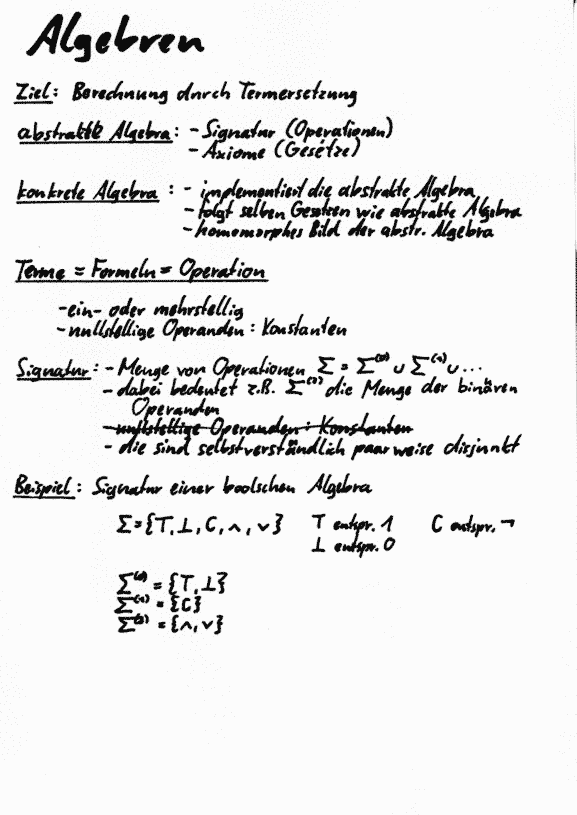 Algebren
Ziel: Berechnung durch Termersetzung
abstrakte Algebra: - Signatur (Operationen)
- Axiome (Gesetze)
konkrete Algebra: - implementiert die abstrakte Algebra
- folgt selben Gesetzen wie abstrakte Algebra
- homomorphes Bild der abstr. Algebra
Terme = Formeln = Operation
- ein- oder mehrstellig
- nullstellige Operanden: Konstanten
Signatur: - Menge von Operationen Σ = Σ⁽⁰⁾ ∪ Σ⁽¹⁾ ∪ ...
- dabei bedeutet z.B. Σ⁽²⁾ die Menge der binären
Operanden
- nullstellige Operanden: Konstanten
- die sind selbstverständlich paarweise disjunkt
Beispiel: Signatur einer boolschen Algebra
Σ = {T, ⊥, C, ∧, ∨} T entspr. 1 C entspr. ¬
⊥ entspr. 0
Σ⁽⁰⁾ = {T, ⊥}
Σ⁽¹⁾ = {C}
Σ⁽²⁾ = {∧, ∨}